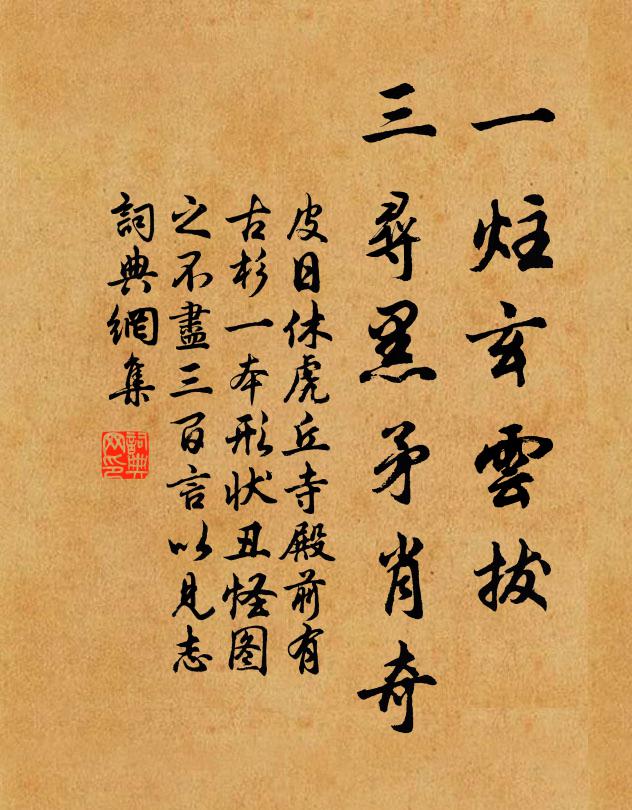 一炷玄雲拔
三尋黑矛肖奇
皮日休虎丘寺殿前有
古杉一本形状丑怪图
之不盡三百言以見志
詞典網集
詞典
网印